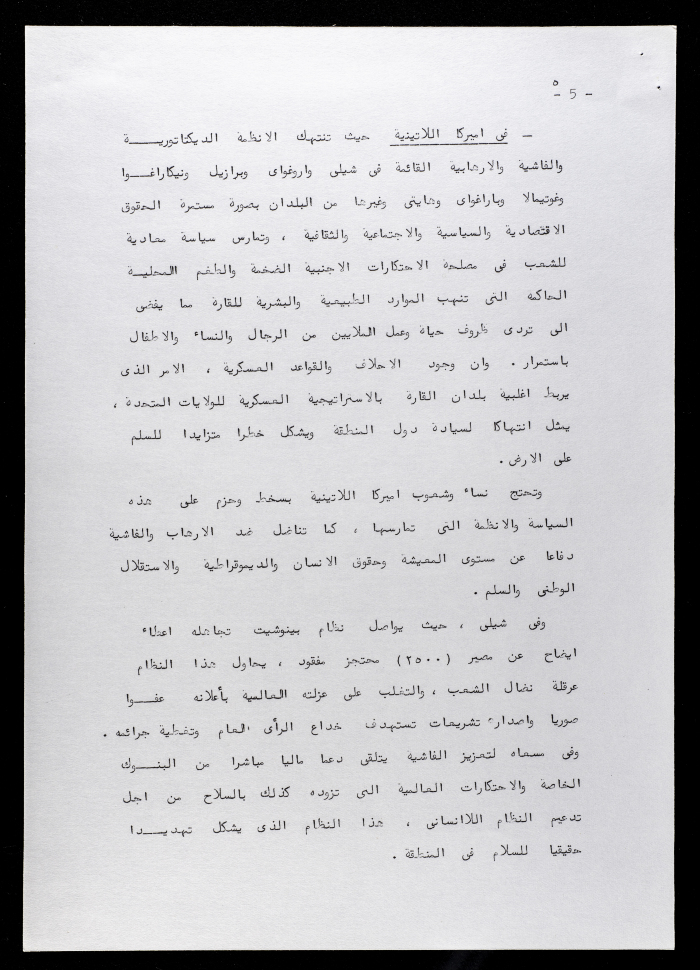 ٥
- 5 -
- فى اميركا اللاتينية حيث تنتهك الانظمة الديكتاتوريـــة
والفاشية والارهابية القائمة فى شيلى واروغواى وبرازيل ونيكاراغـــوا
وغوتيمالا وباراغواى وهايتى وغيرها من البلدان بصورة مستمرة الحقوق
الاقتصادية والسياسية والاجتماعية والثقافية ، وتمارس سياسة معادية
للشعب فى مصلحة الاحتكارات الاجنبية الضخمة والطغم المحليـــة
الحاكمة التى تنهب الموارد الطبيعية والبشرية للقارة مما يفضى
الى تردى ظروف حياة وعمل الملايين من الرجال والنساء والاطفال
باستمرار . وان وجود الاحلاف والقواعد العسكرية ، الامر الذى
يربط اغلبية بلدان القارة بالاستراتيجية العسكرية للولايات المتحدة ،
يمثل انتهاكا لسيادة دول المنطقة ويشكل خطرا متزايدا للسلم
على الارض .
وتحتج نساء وشعوب اميركا اللاتينية بسخط وحزم على هذه
السياسة والانظمة التى تمارسها ، كما تناضل ضد الارهاب والفاشية
دفاعا عن مستوى المعيشة وحقوق الانسان والديموقراطية والاستقلال
الوطنى والسلم .
وفى شيلى ، حيث يواصل نظام بينوشيت تجاهله اعطاء
ايضاح عن مصير (٢٥٠٠) محتجز مفقود ، يحاول هذا النظام
عرقلة نضال الشعب ، والتغلب على عزلته العالمية بأعلانه عفـــوا
صوريا واصداره تشريعات تستهدف خداع الرأى العام وتغطية جرائمه .
وفى مسعاه لتعزيز الفاشية يتلقى دعما ماليا مباشرا من البنـــوك
الخاصة والاحتكارات العالمية التى تزوده كذلك بالسلاح من اجل
تدعيم النظام اللاانسانى ، هذا النظام الذى يشكل تهديـــدا
حقيقيا للسلام فى المنطقة .